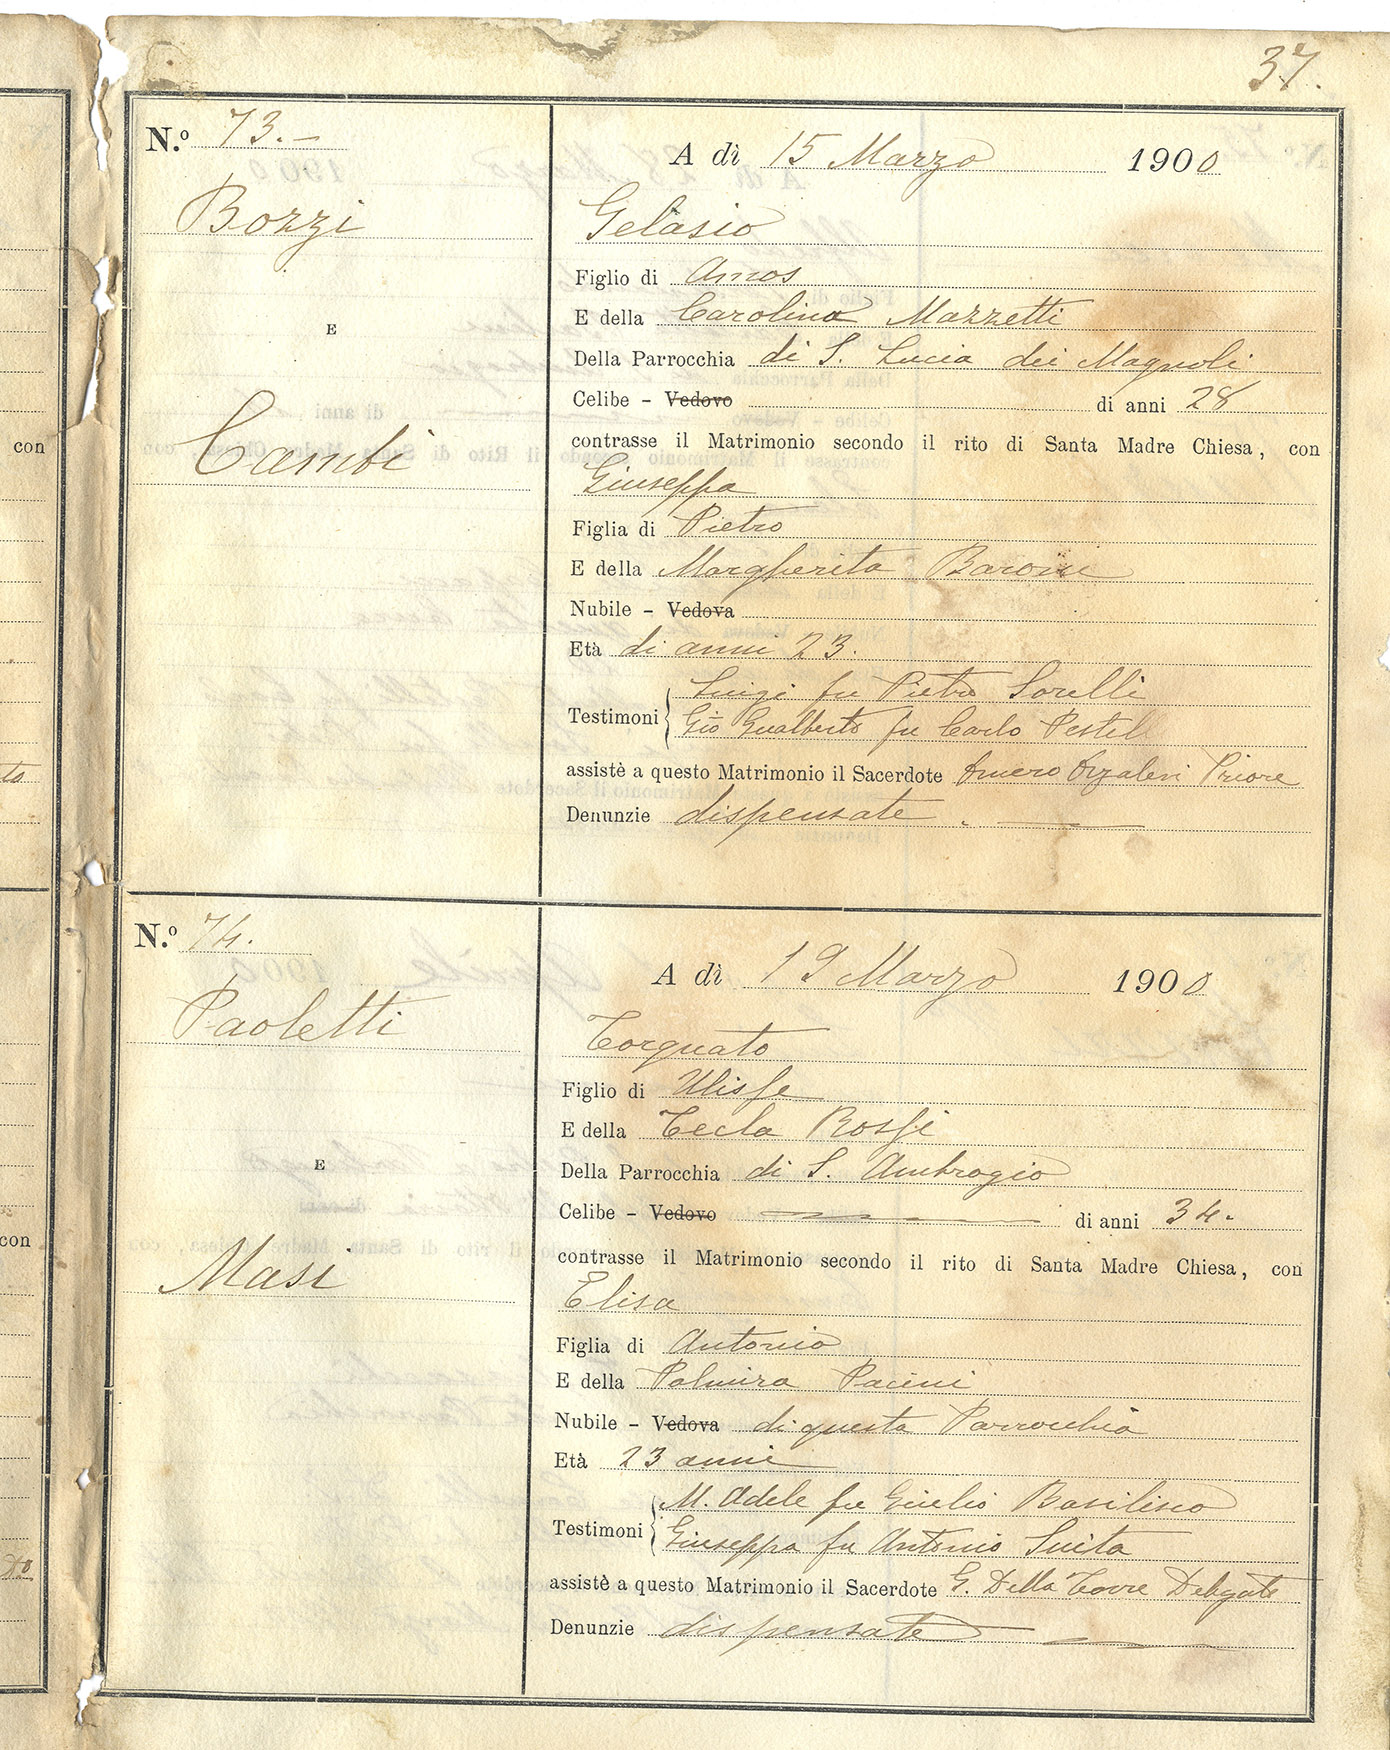 37.
N.º 73.–
A dì 15 Marzo 1900
Bozzi
Gelasio
Figlio di Amos
E
E della Carolina Mazzetti
Della Parrocchia di S. Lucia dei Magnoli
Celibe – Vedovo di anni 28
contrasse il Matrimonio secondo il rito di Santa Madre Chiesa, con
Cambi
Giuseppa
Figlia di Pietro
E della Margherita Baroni
Nubile – Vedova
Età di anni 23.
Testimoni Luigi fu Pietro Sorelli
Gio Gualberto fu Carlo Pestelli
assistè a questo Matrimonio il Sacerdote Priore
Denunzie dispensate.
N.º 74.
A dì 19 Marzo 1900
Paoletti
Torquato
Figlio di Ulisse
E della Tecla Rossi
E
Della Parrocchia di S. Ambrogio
Celibe – Vedovo di anni 34.
contrasse il Matrimonio secondo il rito di Santa Madre Chiesa, con
Masi
Elisa
Figlia di Antonio
E della Palmira Pacini
Nubile – Vedova di questa Parrocchia
Età 23 anni
Testimoni M. Adele fu Giulio
Giuseppa fu Antonio Suita
assistè a questo Matrimonio il Sacerdote G. Della Torre Delegato
Denunzie dispensate
con
to
con